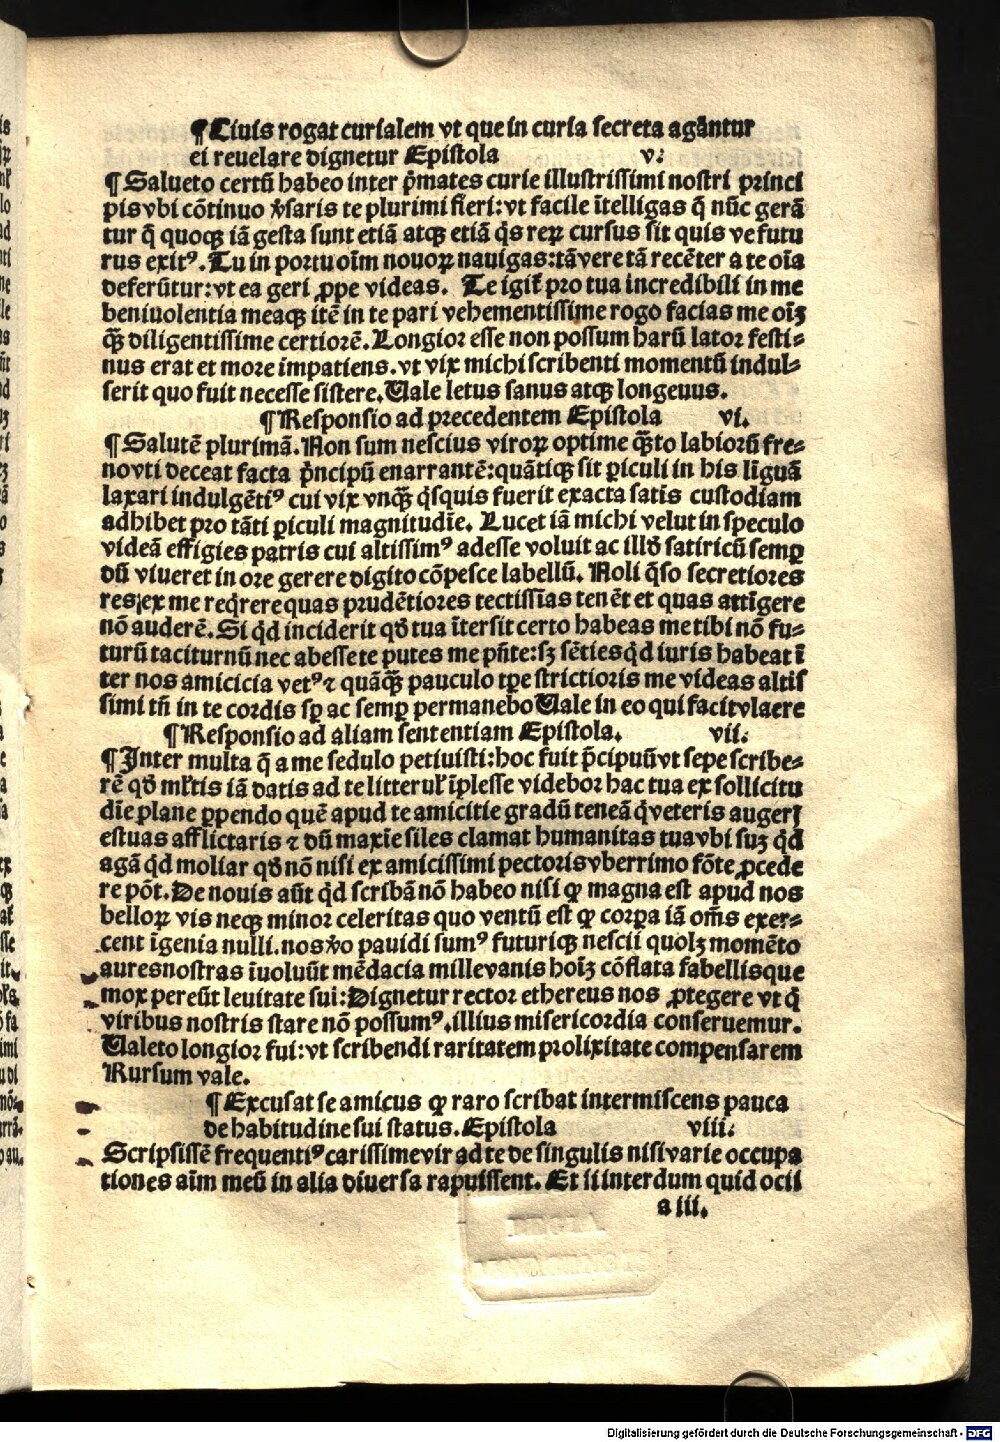 ¶Ciuis rogat curialem vt que in curia secreta agãntur
ei reuelare dignetur Epistola v.
¶Salueto certũ habeo inter p̃mates curie illustrissimi nostri princi
pis vbi cõtinuo v̓saris te plurimi fieri: vt facile ĩtelligas q̃ nũc gerã
tur q̃ quoqꝫ iã gesta sunt etiã atqꝫ etiã q̇s reꝝ cursus sit quis ve futu
rus exitꝰ. Tu in portu oĩm nouoꝝ nauigas: tã vere tã recẽter a te oĩa
deferũtur: vt ea geri ꝓpe videas. Te igit̃ pro tua incredibili in me
beniuolentia meaqꝫ itẽ in te pari vehementissime rogo facias me oĩꝫ
qꝫ̃ diligentissime certiorẽ. Longior esse non possum harũ lator festi⸗
nus erat et more impatiens. vt vix michi scribenti momentũ indul⸗
serit quo fuit necesse sistere. Uale letus sanus atqꝫ longeuus.
¶Responsio ad precedentem Epistola vi.
¶Salutẽ plurimã. Non sum nescius viroꝝ optime qꝫ̃to labiorũ fre⸗
no vti deceat facta p̃ncipũ enarrantẽ: quãtiqꝫ sit ꝑiculi in his lĩguã
laxari indulgẽtiꝰ cui vix vnqꝫ̃ q̇squis fuerit exacta satis custodiam
adhibet pro tãti ꝑiculi magnitudĩe. Lucet iã michi velut in speculo
videã effigies patris cui altissimꝰ adesse voluit ac illđ satiricũ semꝑ
dũ viueret in ore gerere digito cõpesce labellũ. Noli q̃so secretiores
res; ex me req̇rere quas prudẽtiores tectissĩas tenẽt et quas attĩgere
nõ auderẽ. Si q̇d inciderit qđ tua ĩtersit certo habeas me tibi nõ fu⸗
turũ taciturnũ nec abesse te putes me p̃nte: sꝫ sẽties q̇d iuris habeat ĩ
ter nos amicicia vetꝰ ⁊ quãqꝫ̃ pauculo tp̃e strictioris me videas altis
simi tñ in te cordis sꝑ ac semꝑ permanebo Uale in eo qui facit vlaere
¶Responsio ad aliam sententiam Epistola. vii.
¶Inter multa q̃ a me sedulo petiuisti: hoc fuit p̃cipuũ vt sepe scribe⸗
rẽ qđ ml̃tis iã datis ad te litterul̃ ĩplesse videbor hac tua ex sollicitu
dĩe plane ꝑpendo quẽ apud te amicitie gradũ teneã q̇ veteris augeri
estuas afflictaris ⁊ dũ maxĩe siles clamat humanitas tua vbi suꝫ q̇d
agã q̇d moliar qđ nõ nisi ex amicissimi pectoris vberrimo fõte ꝓcede
re põt. De nouis aũt q̇d scribã nõ habeo nisi ꝙ magna est apud nos
belloꝝ vis neqꝫ minor celeritas quo ventũ est ꝙ corꝑa iã om̃s exer⸗
cent ĩgenia nulli. nos v̓o pauidi sumꝰ futuriqꝫ nescii quolꝫ momẽto
aures nostras ĩuoluũt mẽdacia mille vanis hoĩꝫ cõflata fabellisque
mox pereũt leuitate sui: Dignetur rector ethereus nos ꝓtegere vt q̇
viribus nostris stare nõ possumꝰ. illius misericordia conseruemur.
Ualeto longior fui: vt scribendi raritatem prolixitate compensarem
Rursum vale.
¶Excusat se amicus ꝙ raro scribat intermiscens pauca
de habitudine sui status. Epistola viii.
Scripsissẽ frequentiꝰ carissime vir ad te de singulis nisi varie occupa
tiones aĩm meũ in alia diuersa rapuissent. Et ii interdum quid ocii
a iii.
Digitalisierung gefördert durch die Deutsche Forschungsgemeinschaft - DFG